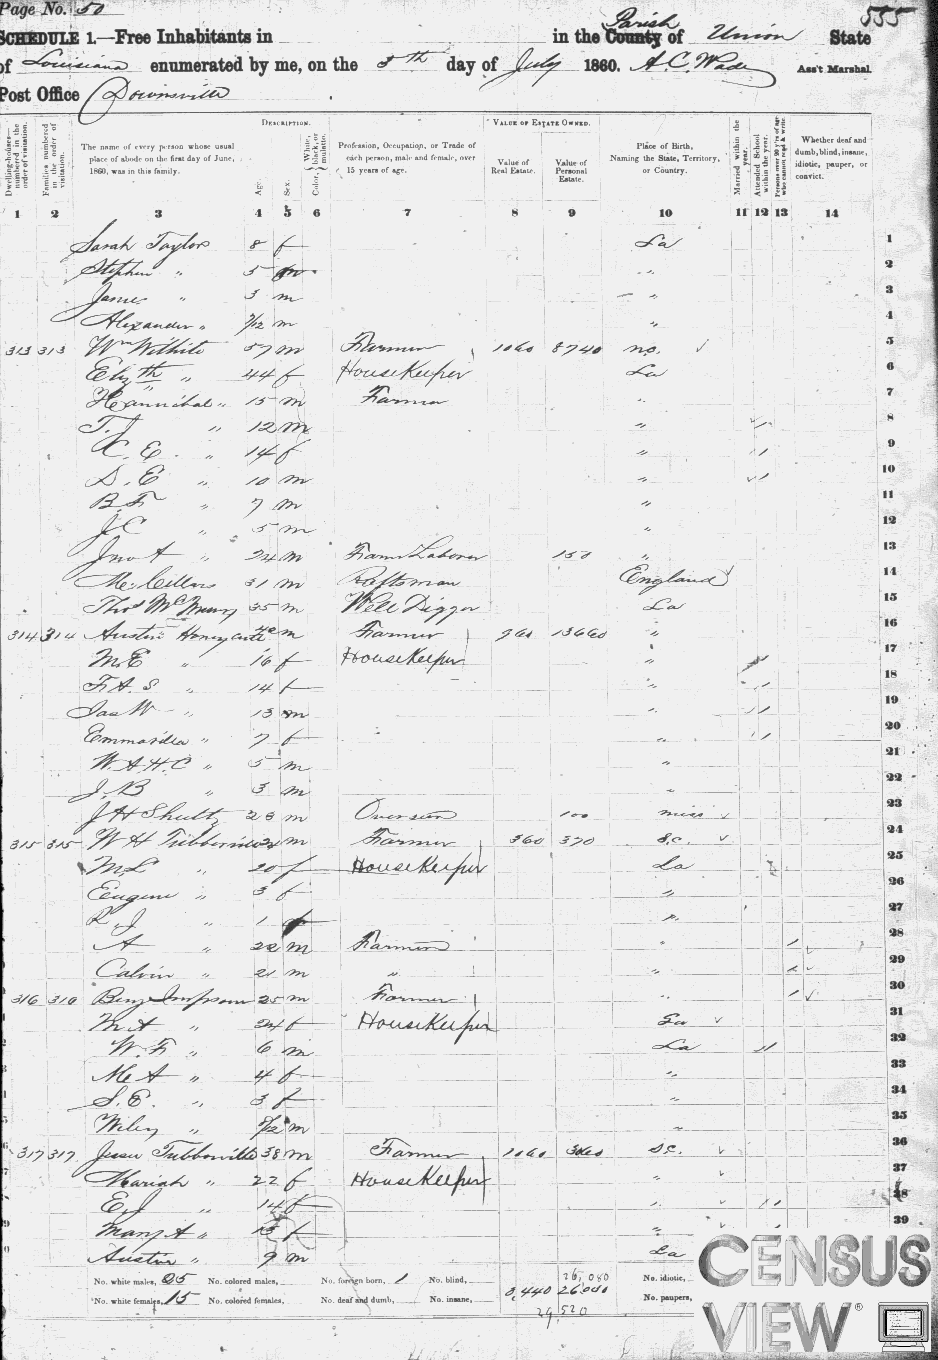 Page No. 50
555
SCHEDULE 1.—Free Inhabitants in in the County Parish of Union State
of Louisiana enumerated by me, on the 5th day of July 1860. A.C. Wade Ass't Marshal.
Post Office Downsville
Dwelling-houses—numbered in the order of visitation.
Families numbered in the order of visitation.
The name of every person whose usual place of abode on the first day of June, 1860, was in this family.
DESCRIPTION.
Age.
Sex.
Color, White, black, or mulatto.
Profession, Occupation, or Trade of each person, male and female, over 15 years of age.
VALUE OF ESTATE OWNED.
Value of Real Estate.
Value of Personal Estate.
Place of Birth, Naming the State, Territory, or Country.
Married within the year.
Attended School within the year.
Persons over 20 y'rs of age who cannot read & write.
Whether deaf and dumb, blind, insane, idiotic, pauper, or convict.
1 2 3 4 5 6 7 8 9 10 11 12 13 14
Sarah Taylor 8 f La 1
Stephen " 5 m " 2
James " 3 m " 3
Alexander " /12 m " 4
313 313 Wm Wilhite 57 m Farmer 1060 8740 N.C. 5
Elizth " 44 f HouseKeeper La 6
Hannibal " 15 m Farmer " 7
T.J " 12 m " / 8
C. E. " 14 f " / 9
S. E " 10 m " / 10
B. F " 7 m " 11
J.C " 5 m " 12
Jno A " 24 m Farm Laborer 150 " 13
31 m Raftsman England 14
Thos 35 m Well Digger La 15
314 314 Austin Honeycutt 40 m Farmer 13660 " 16
M.E " 16 f HouseKeeper " 17
F. A. S " 14 f " / 18
Jas W " 13 m " / 19
" 7 f " / 20
W.A.H.C " 5 m " 21
J. B " 3 m " 22
J H Shultz 28 m Overseer 100 miss 23
315 315 W H Tubberville m Farmer 360 370 S.C. 24
M.L " 20 f HouseKeeper La 25
Eugene " 3 f " 26
J " 1 f " 27
A " 22 m Farmer " / 28
Calvin " 21 m " " / 29
316 316 Benj Simpson 25 m Farmer " / 30
M A " 24 f HouseKeeper 31
W. F " 6 m La / 32
M A " 4 f " 33
S. E. " 3 f " 34
Wiley " /12 m " 35
317 317 Jesse Tubberville 38 m Farmer 1060 S.C. 36
Mariah " 22 f HouseKeeper 37
E J " 14 f " / / 38
Mary A " 13 f " 39
Austin " 9 m La
No. white males, 25 No. colored males, No. foreign born, 1 No. blind, 26,080 No. idiotic,
No. white females, 15 No. colored females, No. deaf and dumb, No. insane, 3,440 26080 No. paupers,
29,520
CENSUS
VIEW®